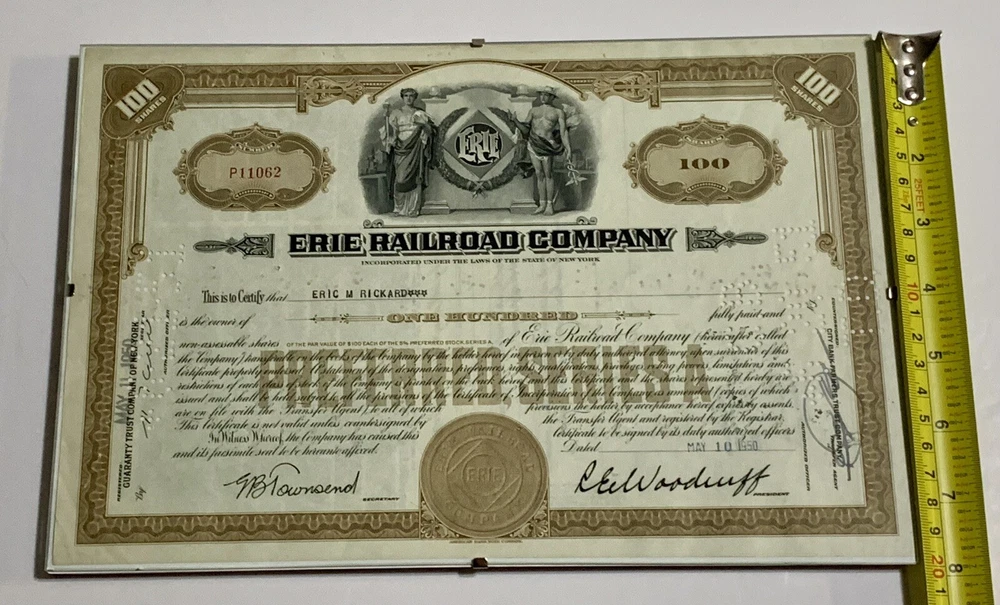 100 SHARES
100 SHARES
NUMBER
P11062
ERIE
SHARES
100
ERIE RAILROAD COMPANY
INCORPORATED UNDER THE LAWS OF THE STATE OF NEW YORK
This is to Certify that ERIC M RICKARD
is the owner of ONE HUNDRED fully paid and
non-assessable shares OF THE PAR VALUE OF $100 EACH OF THE 5% PREFERRED STOCK, SERIES A, of Erie Railroad Company (hereinafter called
the Company) transferable on the books of the Company by the holder hereof in person or by duly authorized attorney, upon surrender of this
Certificate properly endorsed. A statement of the designations, preferences, rights, qualifications, privileges, voting powers, limitations and
restrictions of each class of stock of the Company is printed on the back hereof, and this Certificate and the shares represented hereby are
issued and shall be held subject to all the provisions of the Certificate of Incorporation of the Company as amended (copies of which
are on file with the Transfer Agent), to all of which provisions the holder by acceptance hereof expressly assents.
This Certificate is not valid unless countersigned by the Transfer Agent and registered by the Registrar.
In Witness Whereof, the Company has caused this Certificate to be signed by its duly authorized officers
and its facsimile seal to be hereunto affixed.
Dated MAY 10 1950
GB Townsend
SECRETARY
ERIE
R E Woodruff
PRESIDENT
MAY 11 1950
REGISTERED
GUARANTY TRUST COMPANY OF NEW YORK
By
COUNTERSIGNED
CITY BANK FARMERS TRUST COMPANY
TRANSFER AGENT
By
AUTHORIZED OFFICER
3 4 5 6 7 8 9 10 1 2 3 4 5 6 7 8 9 20 1
2 3 4 5 6 7 8
25FEET